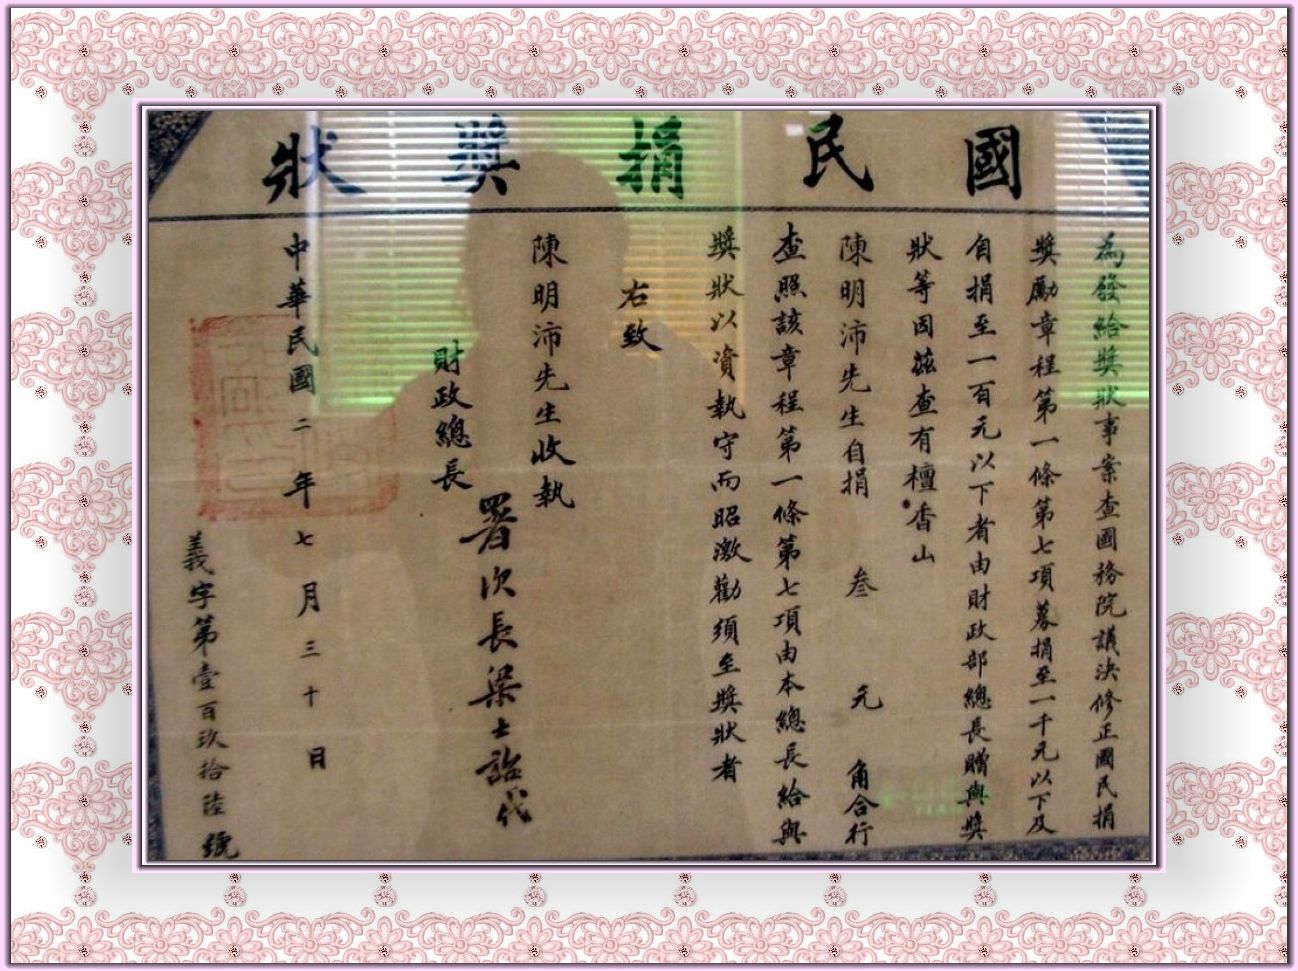 國民捐獎狀
為發給獎狀事案查國務院議決修正國民捐
獎勵章程第一條第七項募捐至一千元以下及
自捐至一百元以下者由財政部總長贈與獎
狀等因茲查有檀香山
陳明沛先生自捐 叁 元 角合行
查照該章程第一條第七項由本總長給與
獎狀以資執守而昭激勸須至獎狀者
右致
陳明沛先生收執
財政總長
署次長梁士詒代
中華民國二年七月三十日
義字第壹百玖拾陸號